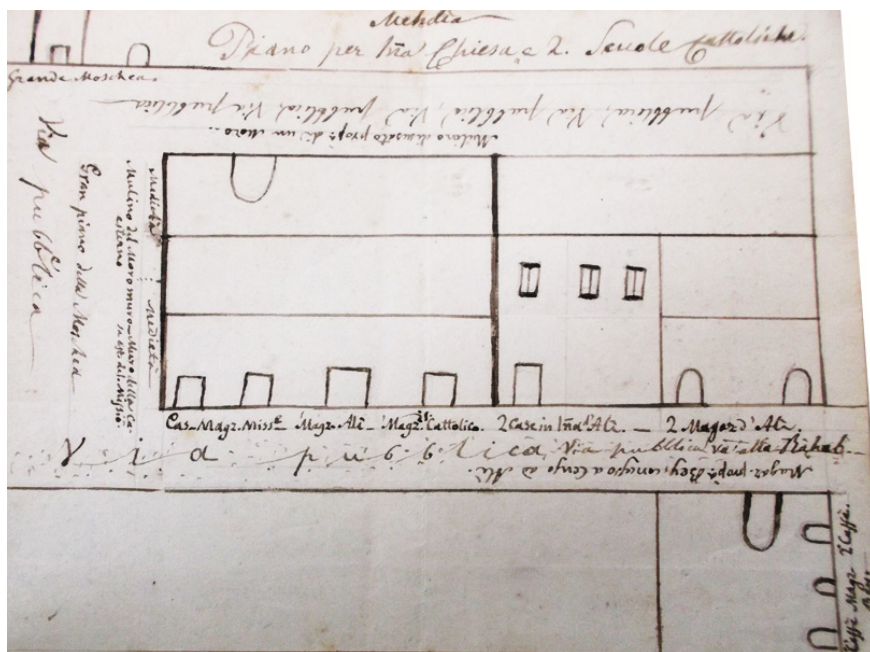 Mehdia
Piano per Iña Chiesa e 2. Scuole Cattoliche.
Grande Moschea.
Via pubblica, Via pubblica, Via pubblica, Via pubblica
Mulino disusato prop: di un Moro
Via pubblica
Gran piano della Moschea
Mulino del Moro muro - Muro della Ca:
Medietà
Medietà
Cas- Magz. Miss.e - Magz. Alì - Magz. Cattolico. 2 Case in Iña d'Alì. - 2 Magaz d'Alì.
Via pubblica Via pubblica va alla Rahab
Magaz. prop: Bey, a Alì.
2 Caffè.
Caffè Magz